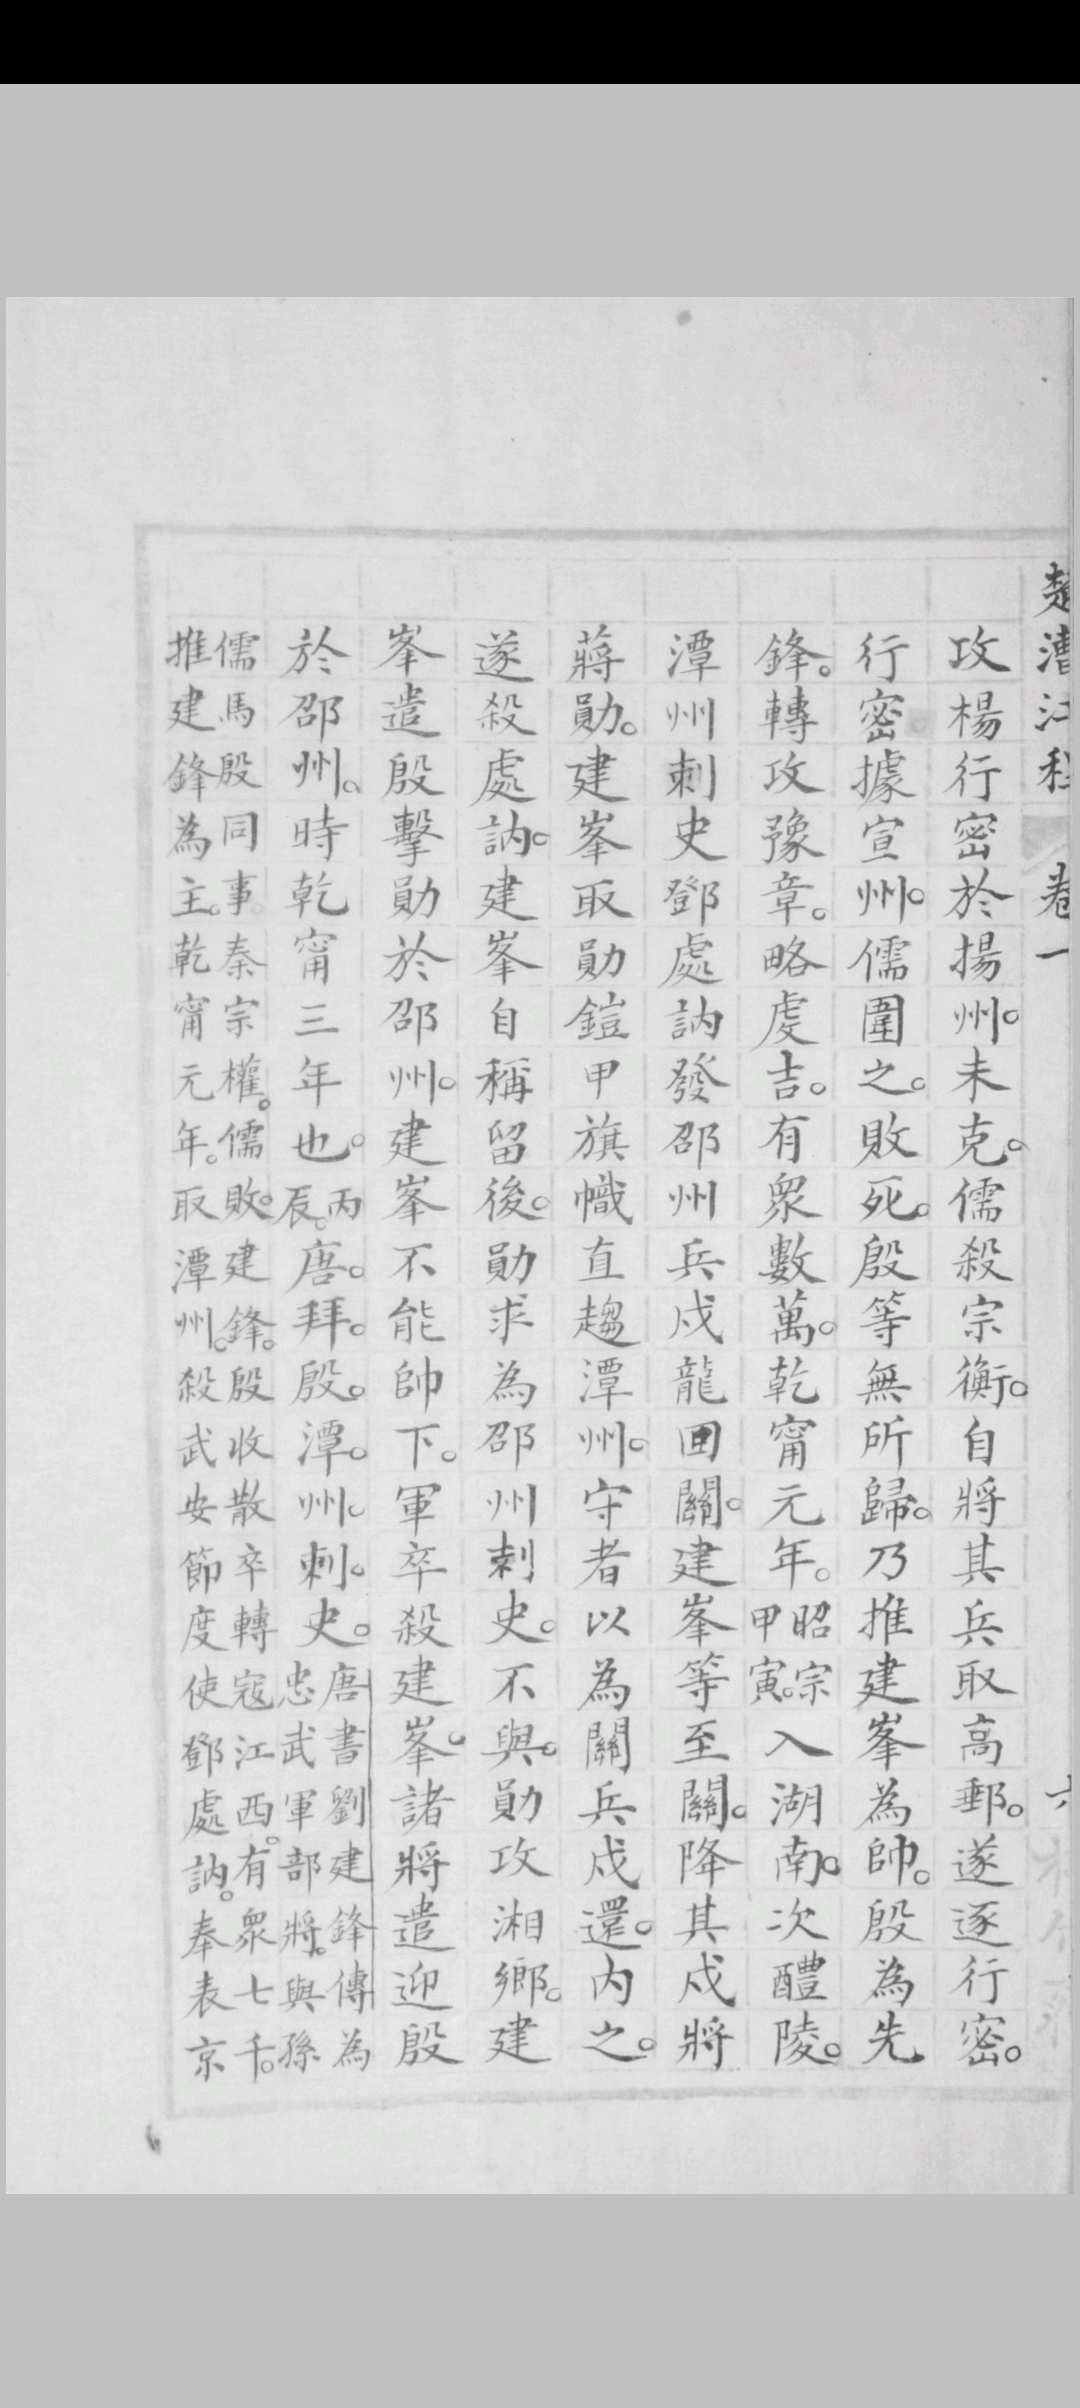 楚漕江程 卷一 六
攻楊行密於揚州。未克。儒殺宗衡。自將其兵取高郵。遂逐行密。
行密據宣州。儒圍之。敗死。殷等無所歸。乃推建峯為帥。殷為先
鋒。轉攻豫章。略虔吉。有眾數萬。乾甯元年。昭宗甲寅。入湖南。次醴陵。
潭州刺史鄧處訥發邵州兵戍龍囬關。建峯等至關。降其戍將
蔣勛。建峯取勛鎧甲旗幟直趨潭州。守者以為關兵戍還。內之。
遂殺處訥。建峯自稱留後。勛求為邵州刺史。不與。勛攻湘鄉。建
峯遣殷擊勛於邵州。建峯不能帥下。軍卒殺建峯。諸將遣迎殷
於邵州。時乾甯三年也。丙辰。唐。拜。殷。潭。州。刺。史。唐書劉建鋒傳為
忠武軍部將。與孫
儒馬殷同事秦宗權。儒敗。建鋒。殷收散卒轉寇江西。有眾七千。
推建鋒為主。乾甯元年。取潭州。殺武安節度使鄧處訥。奉表京